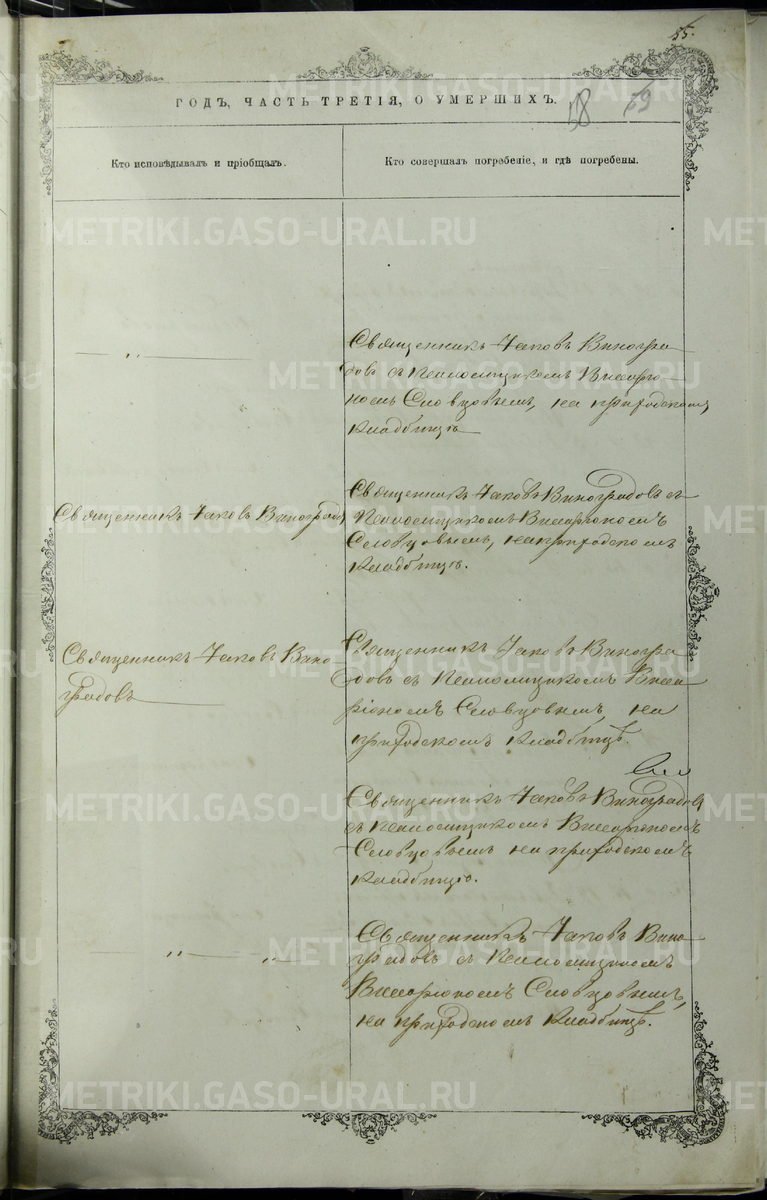 55.
ГОДЪ, ЧАСТЬ ТРЕТІЯ, О УМЕРШИХЪ.
58 59
Кто исповѣдывалъ и пріобщалъ.
Кто совершалъ погребеніе, и гдѣ погребены.
— „ —
Священникъ Іаковъ Виногра
довъ съ Псаломщикомъ Виссаріо-
номъ Словцовымъ, на приходскомъ
кладбищѣ
Священникъ Іаковъ Виноградовъ
Священникъ Іаковъ Виноградовъ съ
Псаломщикомъ Виссаріономъ
Словцовымъ, на приходскомъ
кладбищѣ.
Священникъ Іаковъ Вино-
градовъ
Священникъ Іаковъ Виногра
довъ съ Псаломщикомъ Висса
ріономъ Словцовымъ на
приходскомъ кладбищѣ.
Священникъ Іаковъ Виноградовъ
съ Псаломщикомъ Виссаріономъ
Словцовымъ на приходскомъ
кладбищѣ.
— „ — „
Священникъ Іаковъ Вино
градовъ съ Псаломщикомъ
Виссаріономъ Словцовымъ,
на приходскомъ кладбищѣ.
METRIKI.GASO-URAL.RU